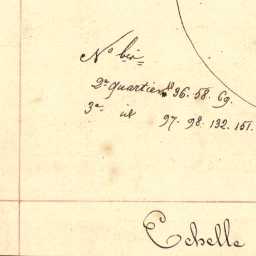 No bis
2e quartier 36. 58. 69.
3e id 97. 98. 132. 151.
Echelle